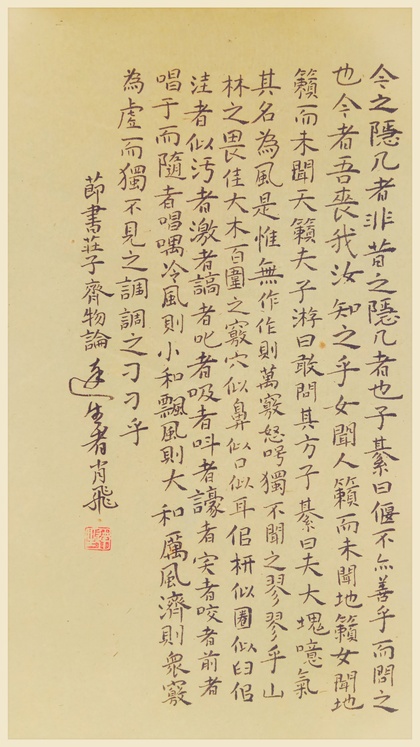 今之隱几者非昔之隱几者也子綦曰偃不亦善乎而問之
也今者吾喪我汝知之乎女聞人籟而未聞地籟女聞地
籟而未聞天籟夫子游曰敢問其方子綦曰夫大塊噫氣
其名為風是惟無作作則萬竅怒呺獨不聞之翏翏乎山
林之畏佳大木百圍之竅穴似鼻似口似耳佀枅似圈似臼佀
洼者似污者激者謞者叱者吸者叫者譹者宎者咬者前者
唱于而隨者唱喁冷風則小和飄風則大和厲風濟則衆竅
為虛而獨不見之調調之刁刁乎
節書莊子齊物論 生者肖飛